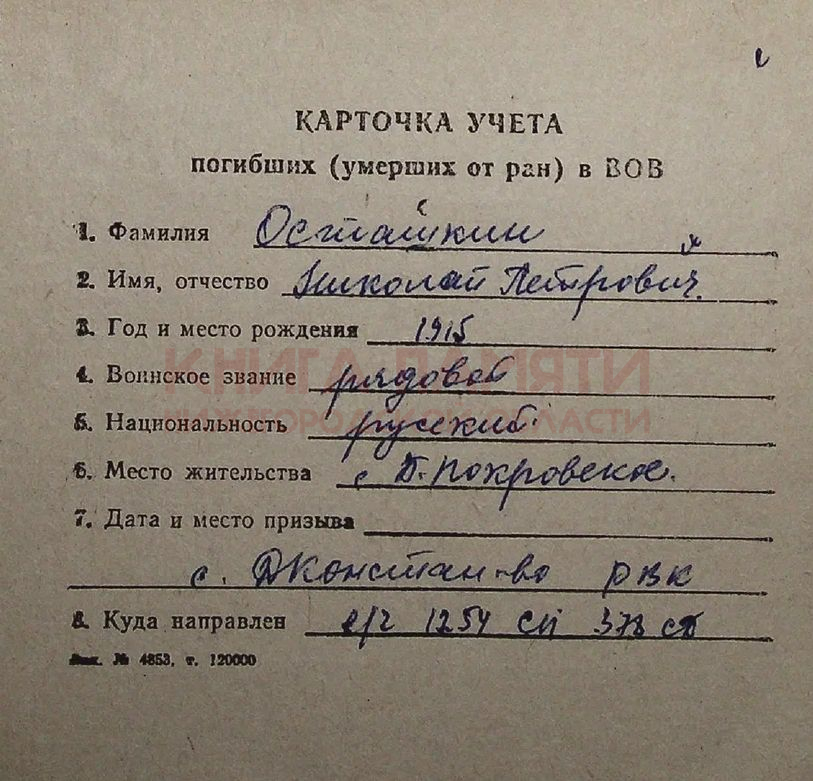 КАРТОЧКА УЧЕТА
погибших (умерших от ран) в ВОВ
1. Фамилия Осташкин
2. Имя, отчество Николай Петрович.
3. Год и место рождения 1915
КНИГА ПАМЯТИ
4. Воинское звание рядовой
НИЖЕГОРОДСКОЙ ОБЛАСТИ
5. Национальность русский
6. Место жительства с Б. Покровское.
7. Дата и место призыва
с. Дконстан-во РВК
8. Куда направлен в/ч 1254 сп 378 сд
Зак. № 4853, т. 120000